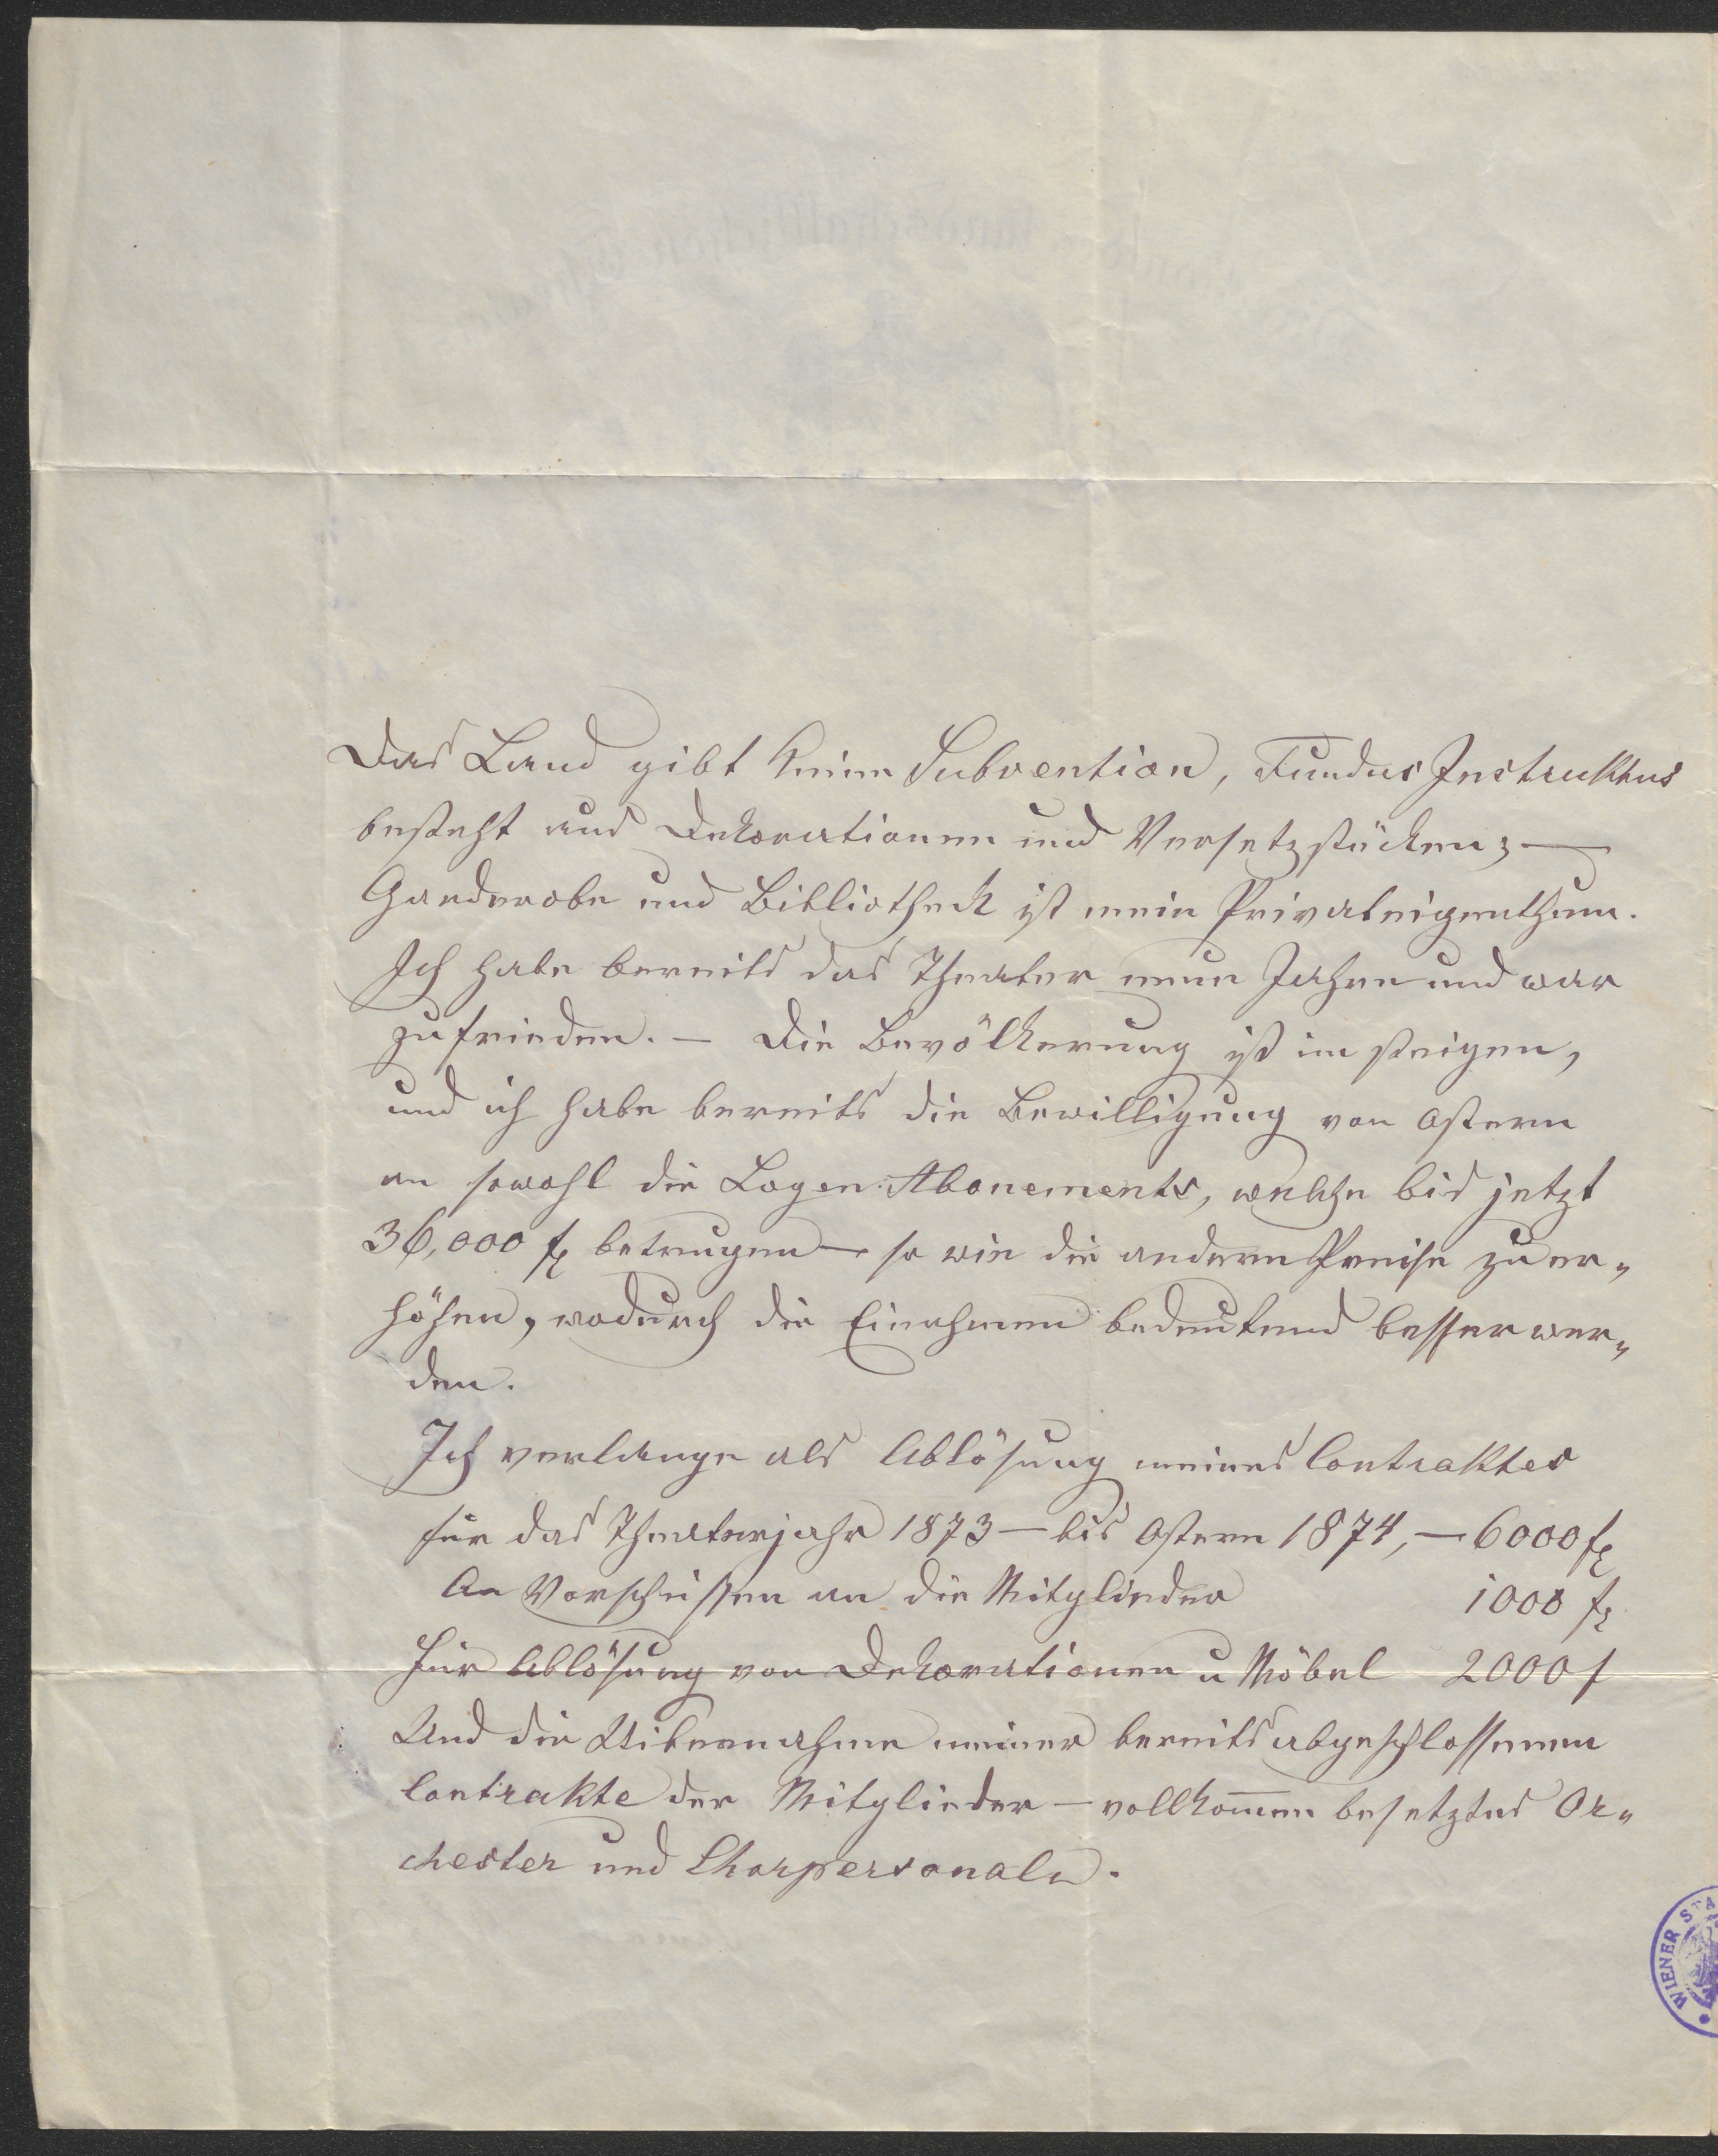 Das Land gibt keine Subvention, Fundus Instruktus
besteht aus Dekorationen und Versetzstücken; —
Garderobe und Bibliothek ist mein Privateigenthum.
Ich habe bereits das Theater neun Jahre und war
zufrieden. — Die Bevölkerung ist im steigen,
und ich habe bereits die Bewilligung von Ostern
an sowohl die Logen-Abonements, welche bis jetzt
36,000 fl betrugen — so wie die andern Preise zu er„
höhen, wodurch die Einahmen bedeutend besser wer„
den.
Ich verlange als Ablösung meines Contraktes
für das Theaterjahr 1873 — bis Ostern 1874, — 6000 fl
An Vorschüssen an die Mitglieder 1000 fl
Für Ablösung von Dekorationen u Möbel 2000 f
Und die Uibernahme meiner bereits abgeschlossenen
Contrakte der Mitglieder — vollkom̅en besetztes Or„
chester und Chorpersonale.
WIENER